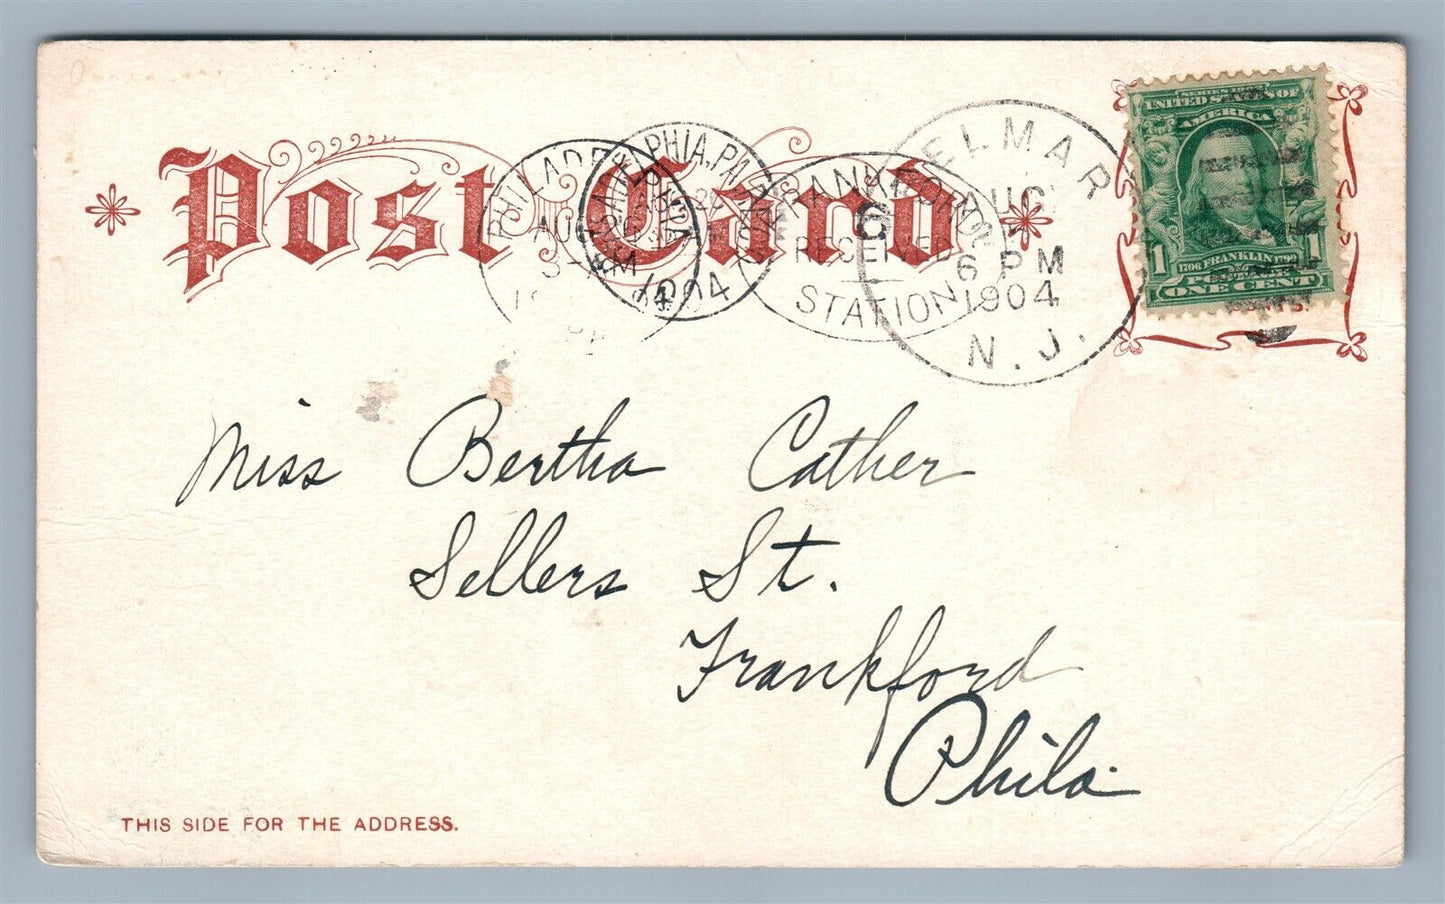 Post Card
PHILADELPHIA, PA.
AUG
1904
FRANKFORD
6
RECEIVED
STATION
ELMAR
AUG
6 PM
1904
N.J.
UNITED STATES OF
AMERICA
1706 FRANKLIN 1790
1
ONE CENT
Miss Bertha Cather
Sellers St.
Frankford
Phila.
THIS SIDE FOR THE ADDRESS.